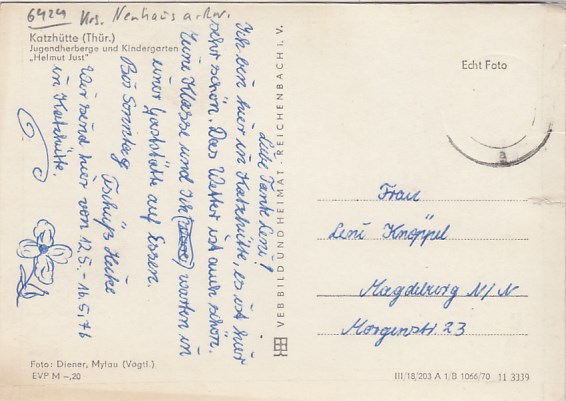 6424 Krs. Neuhaus a. Rw.
Katzhütte (Thür.)
Jugendherberge und Kindergarten
„Helmut Just"
Liebe Tante Leni!
Ich bin hier in Katzhütte, es ist hier
sehr schön. Das Wetter ist auch schön.
Eine Klasse und Ich warten in
einer Gaststätte auf Essen.
Bis Sonntag Tschüß Heike
Wir sind hier von 12.5.-16.5.76
in Katzhütte.
VEB BILD UND HEIMAT · REICHENBACH I. V.
Echt Foto
Frau
Leni Knöppel
Magdeburg N/N
Morgenstr. 23
Foto: Diener, Mylau (Vogtl.)
EVP M –,20
III/18/203 A 1/B 1066/70 11 3339